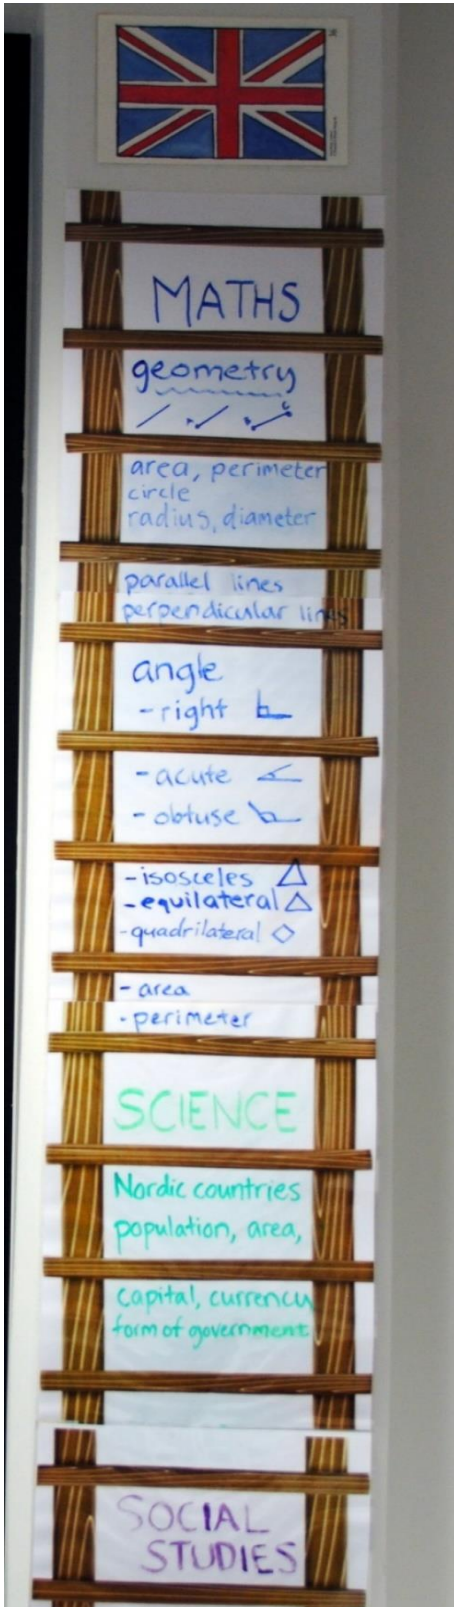 MATHS
geometry
area, perimeter
circle
radius, diameter
parallel lines
perpendicular lines
angle
- right
- acute
- obtuse
- isosceles
- equilateral
- quadrilateral
- area
- perimeter
SCIENCE
Nordic countries
population, area,
capital, currency
form of government
SOCIAL
STUDIES